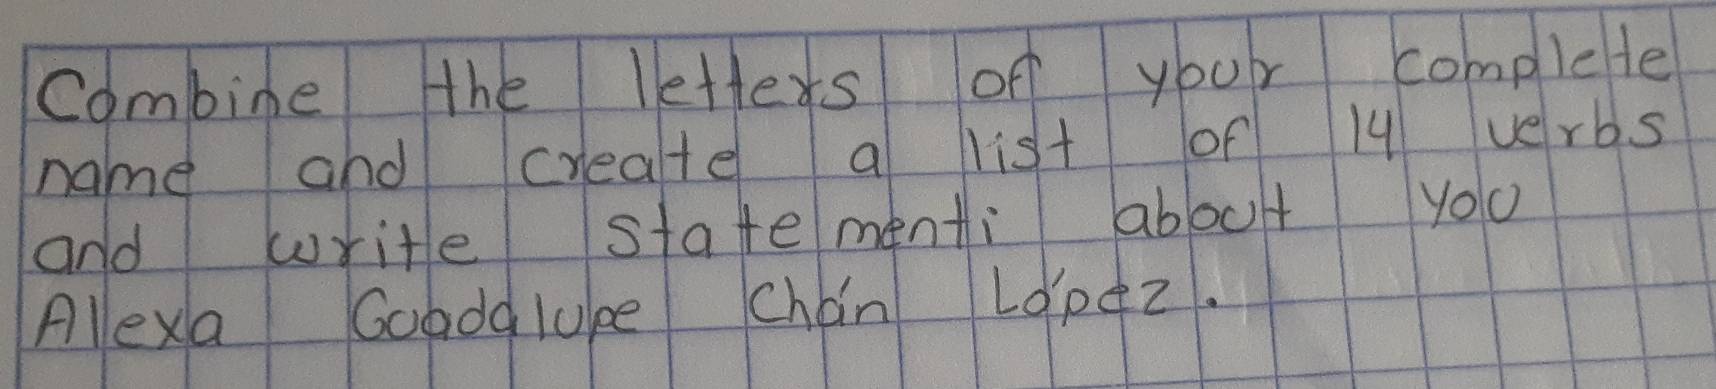 Combine the letters of your complete
name and create a list of 14 verbs
and write statementi about you
Alexa Guadalupe Chán López.